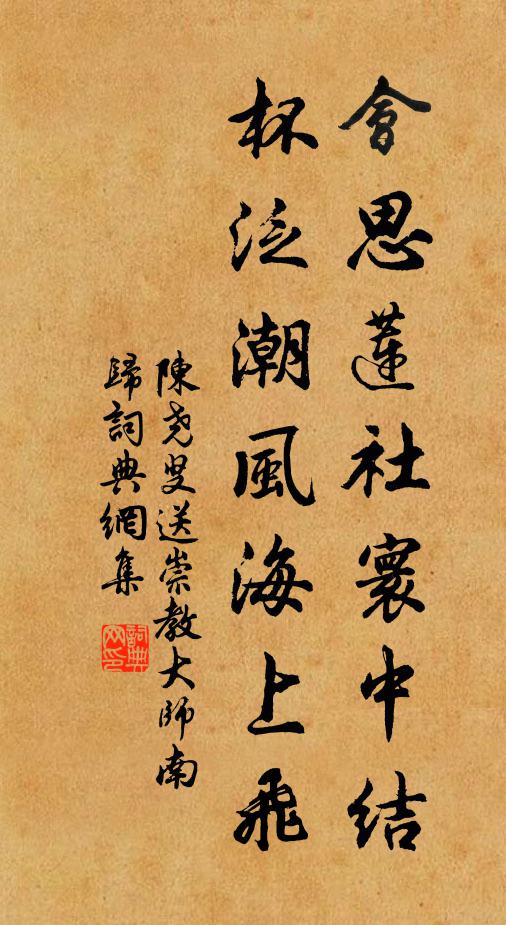 會思蓮社寰中結
杯泛潮風海上飛
陳堯叟送崇教大師南
歸詞典網集
詞典
网印